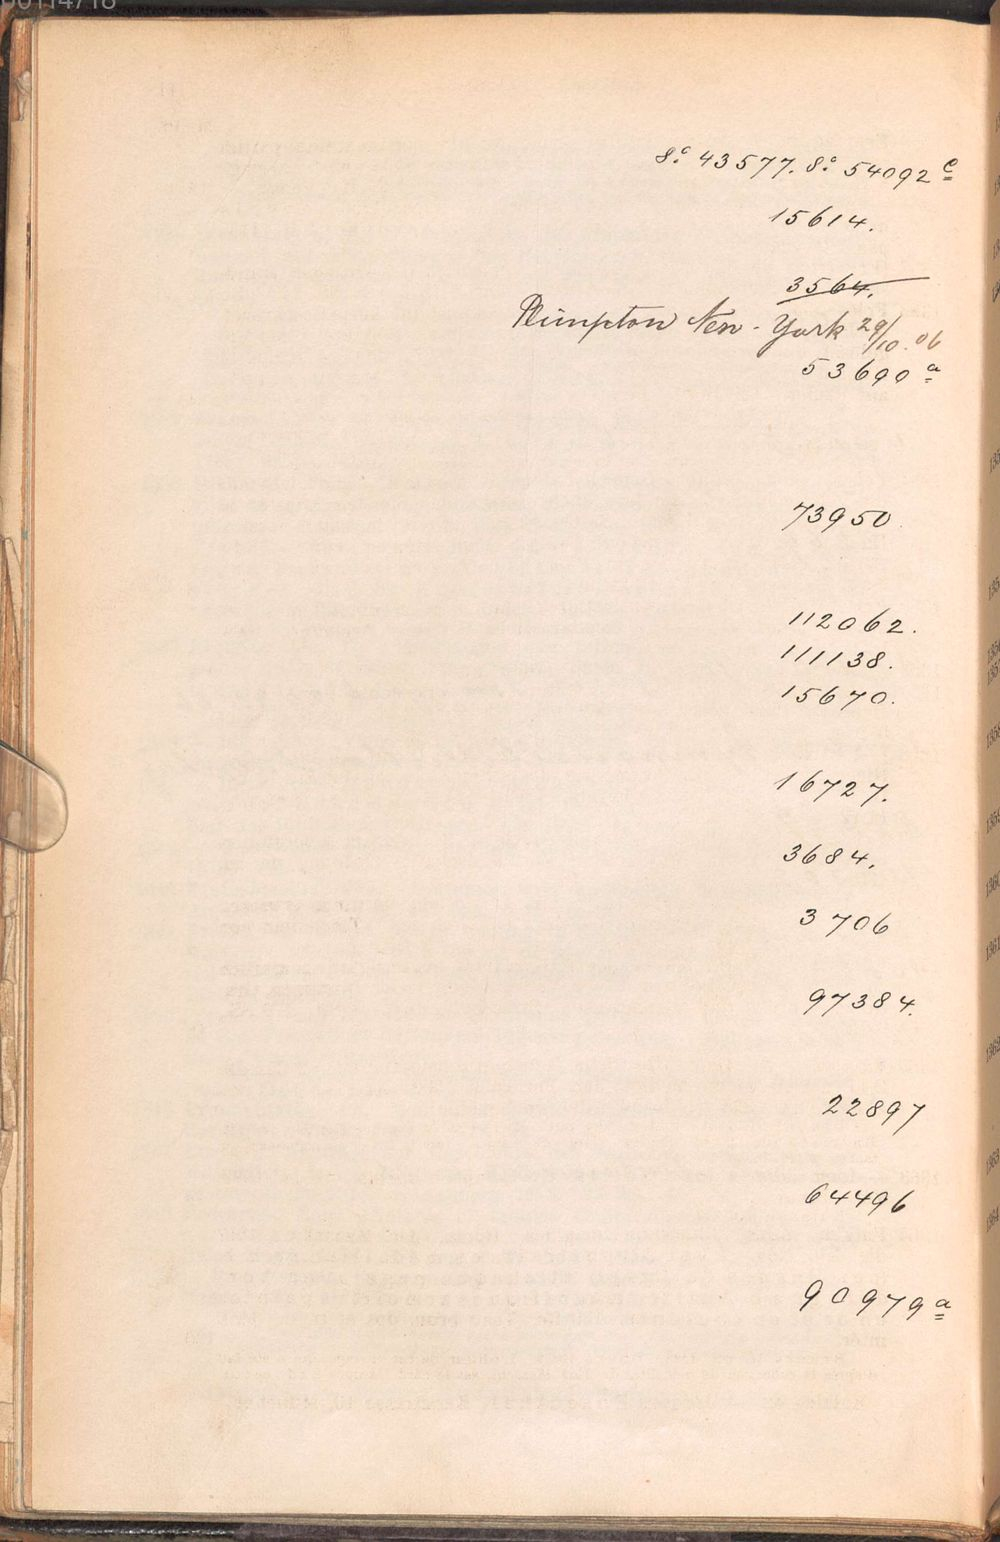 8.° 43577. 8° 54092 c
15614.
3564.
Plimpton New-York 29/10. 06
53690 a
73950.
112062.
111138.
15670.
16727.
3684.
3706
97384.
22897
64496
90979 a